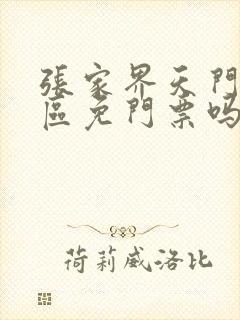 張家界天門
區免門票嗎
荷莉威洛比